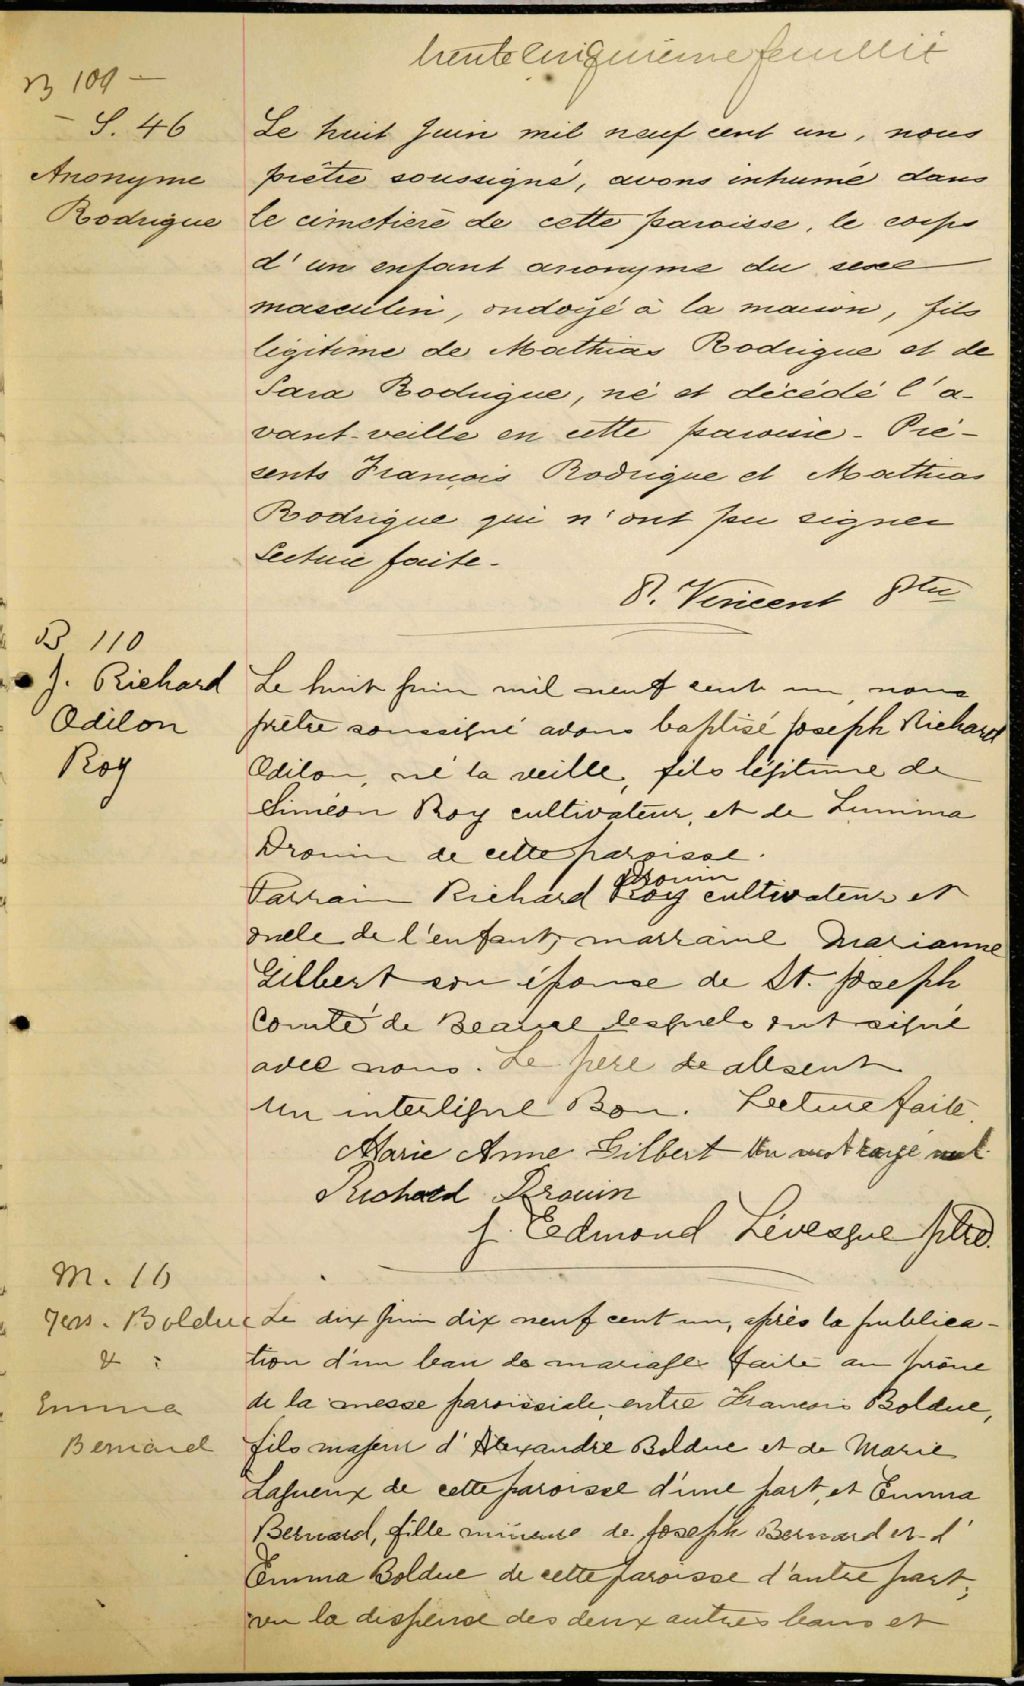 trente cinquième feuillet
B 109 —
— S. 46
Anonyme
Rodrigue
Le huit Juin mil neuf cent un, nous
prêtre soussigné, avons inhumé dans
le cimetière de cette paroisse, le corps
d'un enfant anonyme du sexe
masculin, ondoyé à la maison, fils
légitime de Mathias Rodrigue et de
Sara Rodrigue, né et décédé l'a-
vant-veille en cette paroisse - Pré-
sents François Rodrigue et Mathias
Rodrigue qui n'ont pu signer
Lecture faite -
P. Vincent Ptre
B 110
J. Richard
Odilon
Roy
Le huit juin mil neuf cent un, nous
prêtre soussigné avons baptisé Joseph Richard
Odilon, né la veille, fils légitime de
Siméon Roy cultivateur, et de Lumina
Drouin de cette paroisse.
Drouin
Parrain Richard Roy cultivateur et
oncle de l'enfant, marraine Marianne
Gilbert son épouse de St. Joseph
Comté de Beauce lesquels ont signé
avec nous. Le père de absent
Un interligne Bon. Lecture faite.
Marie Anne Gilbert Un mot rayé nul
Richard Drouin
J. Edmond Lévesque ptre.
M. 16
Frs. Bolduc
&
Emma
Bernard
Le dix juin dix neuf cent un, après la publica-
tion d'un ban de mariage faite au prône
de la messe paroissiale, entre François Bolduc,
fils majeur d'Alexandre Bolduc et de Marie
Lagueux de cette paroisse d'une part, et Emma
Bernard, fille mineure de Joseph Bernard et d'
Emma Bolduc de cette paroisse d'autre part;
vu la dispense des deux autres bans et